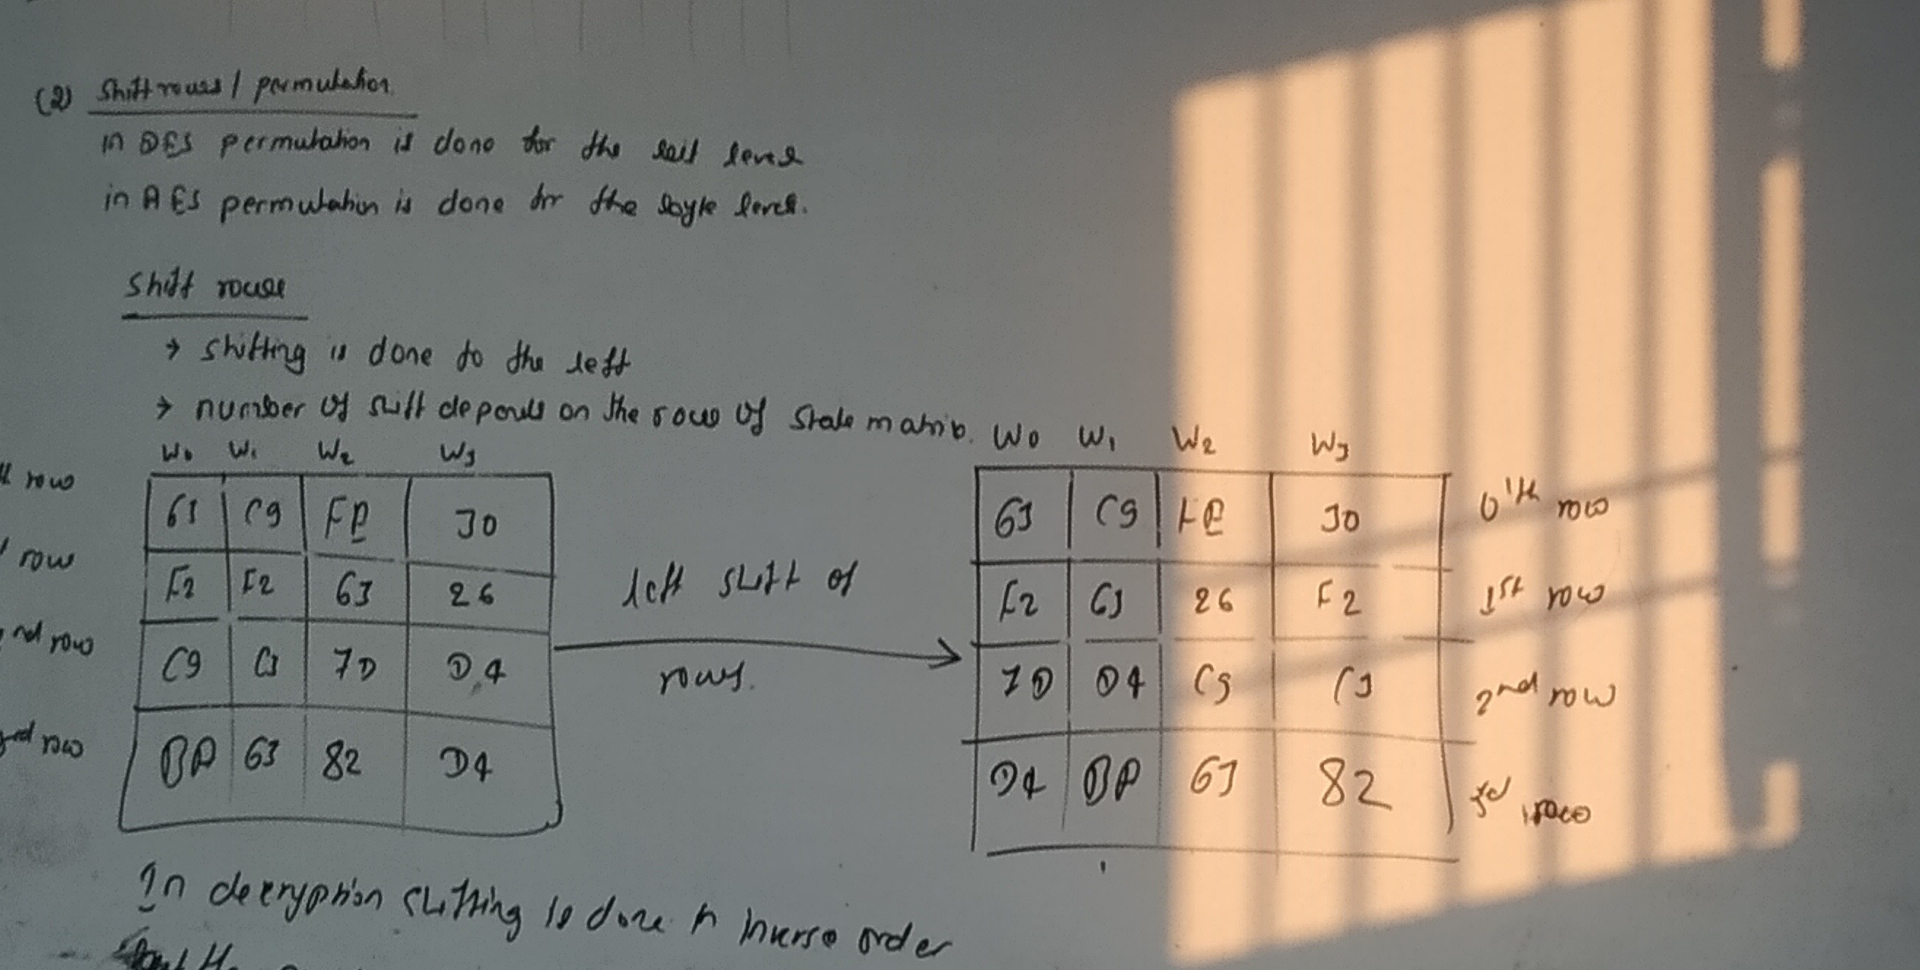 (2) Shift rows / permutation.
in DES permutation is done for the bit level
in AES permutation is done for the byte level.
Shift rows
→ shifting is done to the left
→ number of shift depends on the row of state matrix.
W0 W1 W2 W3
63 C9 FE 30
F2 F2 63 26
C9 C9 7D D4
BA 63 82 D4
left shift of
rows.
W0 W1 W2 W3
63 C9 FE 30 0'th row
F2 63 26 F2 1st row
7D D4 C9 C9 2nd row
D4 BA 63 82 3rd row
row
row
nd row
3rd row
In decryption shifting is done in inverse order